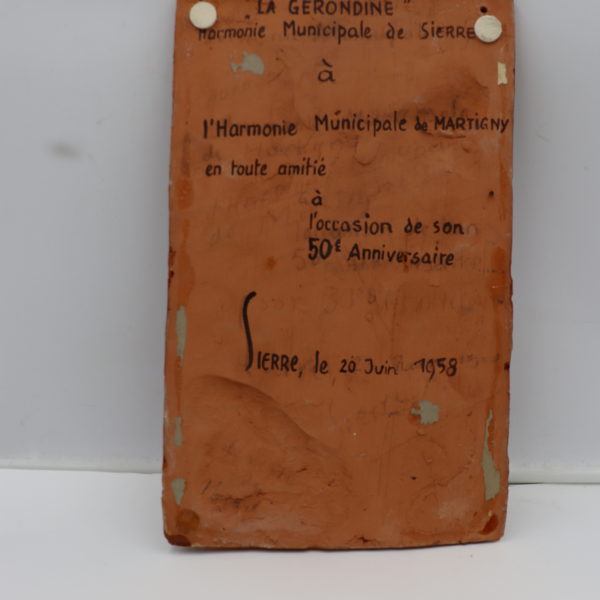 "LA GERONDINE"
Harmonie Municipale de SIERRE
à
l'Harmonie Municipale de MARTIGNY
en toute amitié
à
l'occasion de son
50e Anniversaire
SIERRe, le 20 Juin 1958